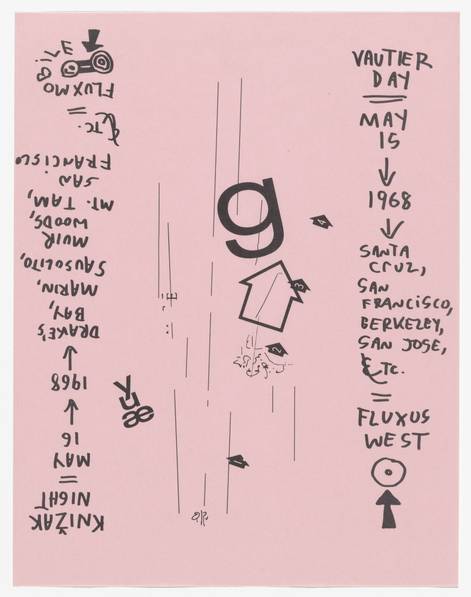 VAUTIER
DAY
MAY
15
1968
SANTA
CRUZ,
SAN
FRANCISCO,
BERKELEY,
SAN JOSE,
ETC.
=
FLUXUS
WEST
g
KNIŽAK
NIGHT
=
MAY
16
1968
DRAKE'S
BAY,
MARIN,
SAUSOLITO,
MUIR
WOODS,
MT. TAM,
SAN
FRANCISCO
ETC.
=
FLUXMOBILE